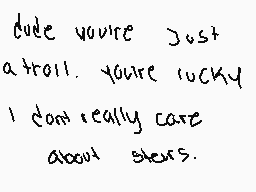 dude you're just
a troll. you're lucky
I don't really care
about stars.